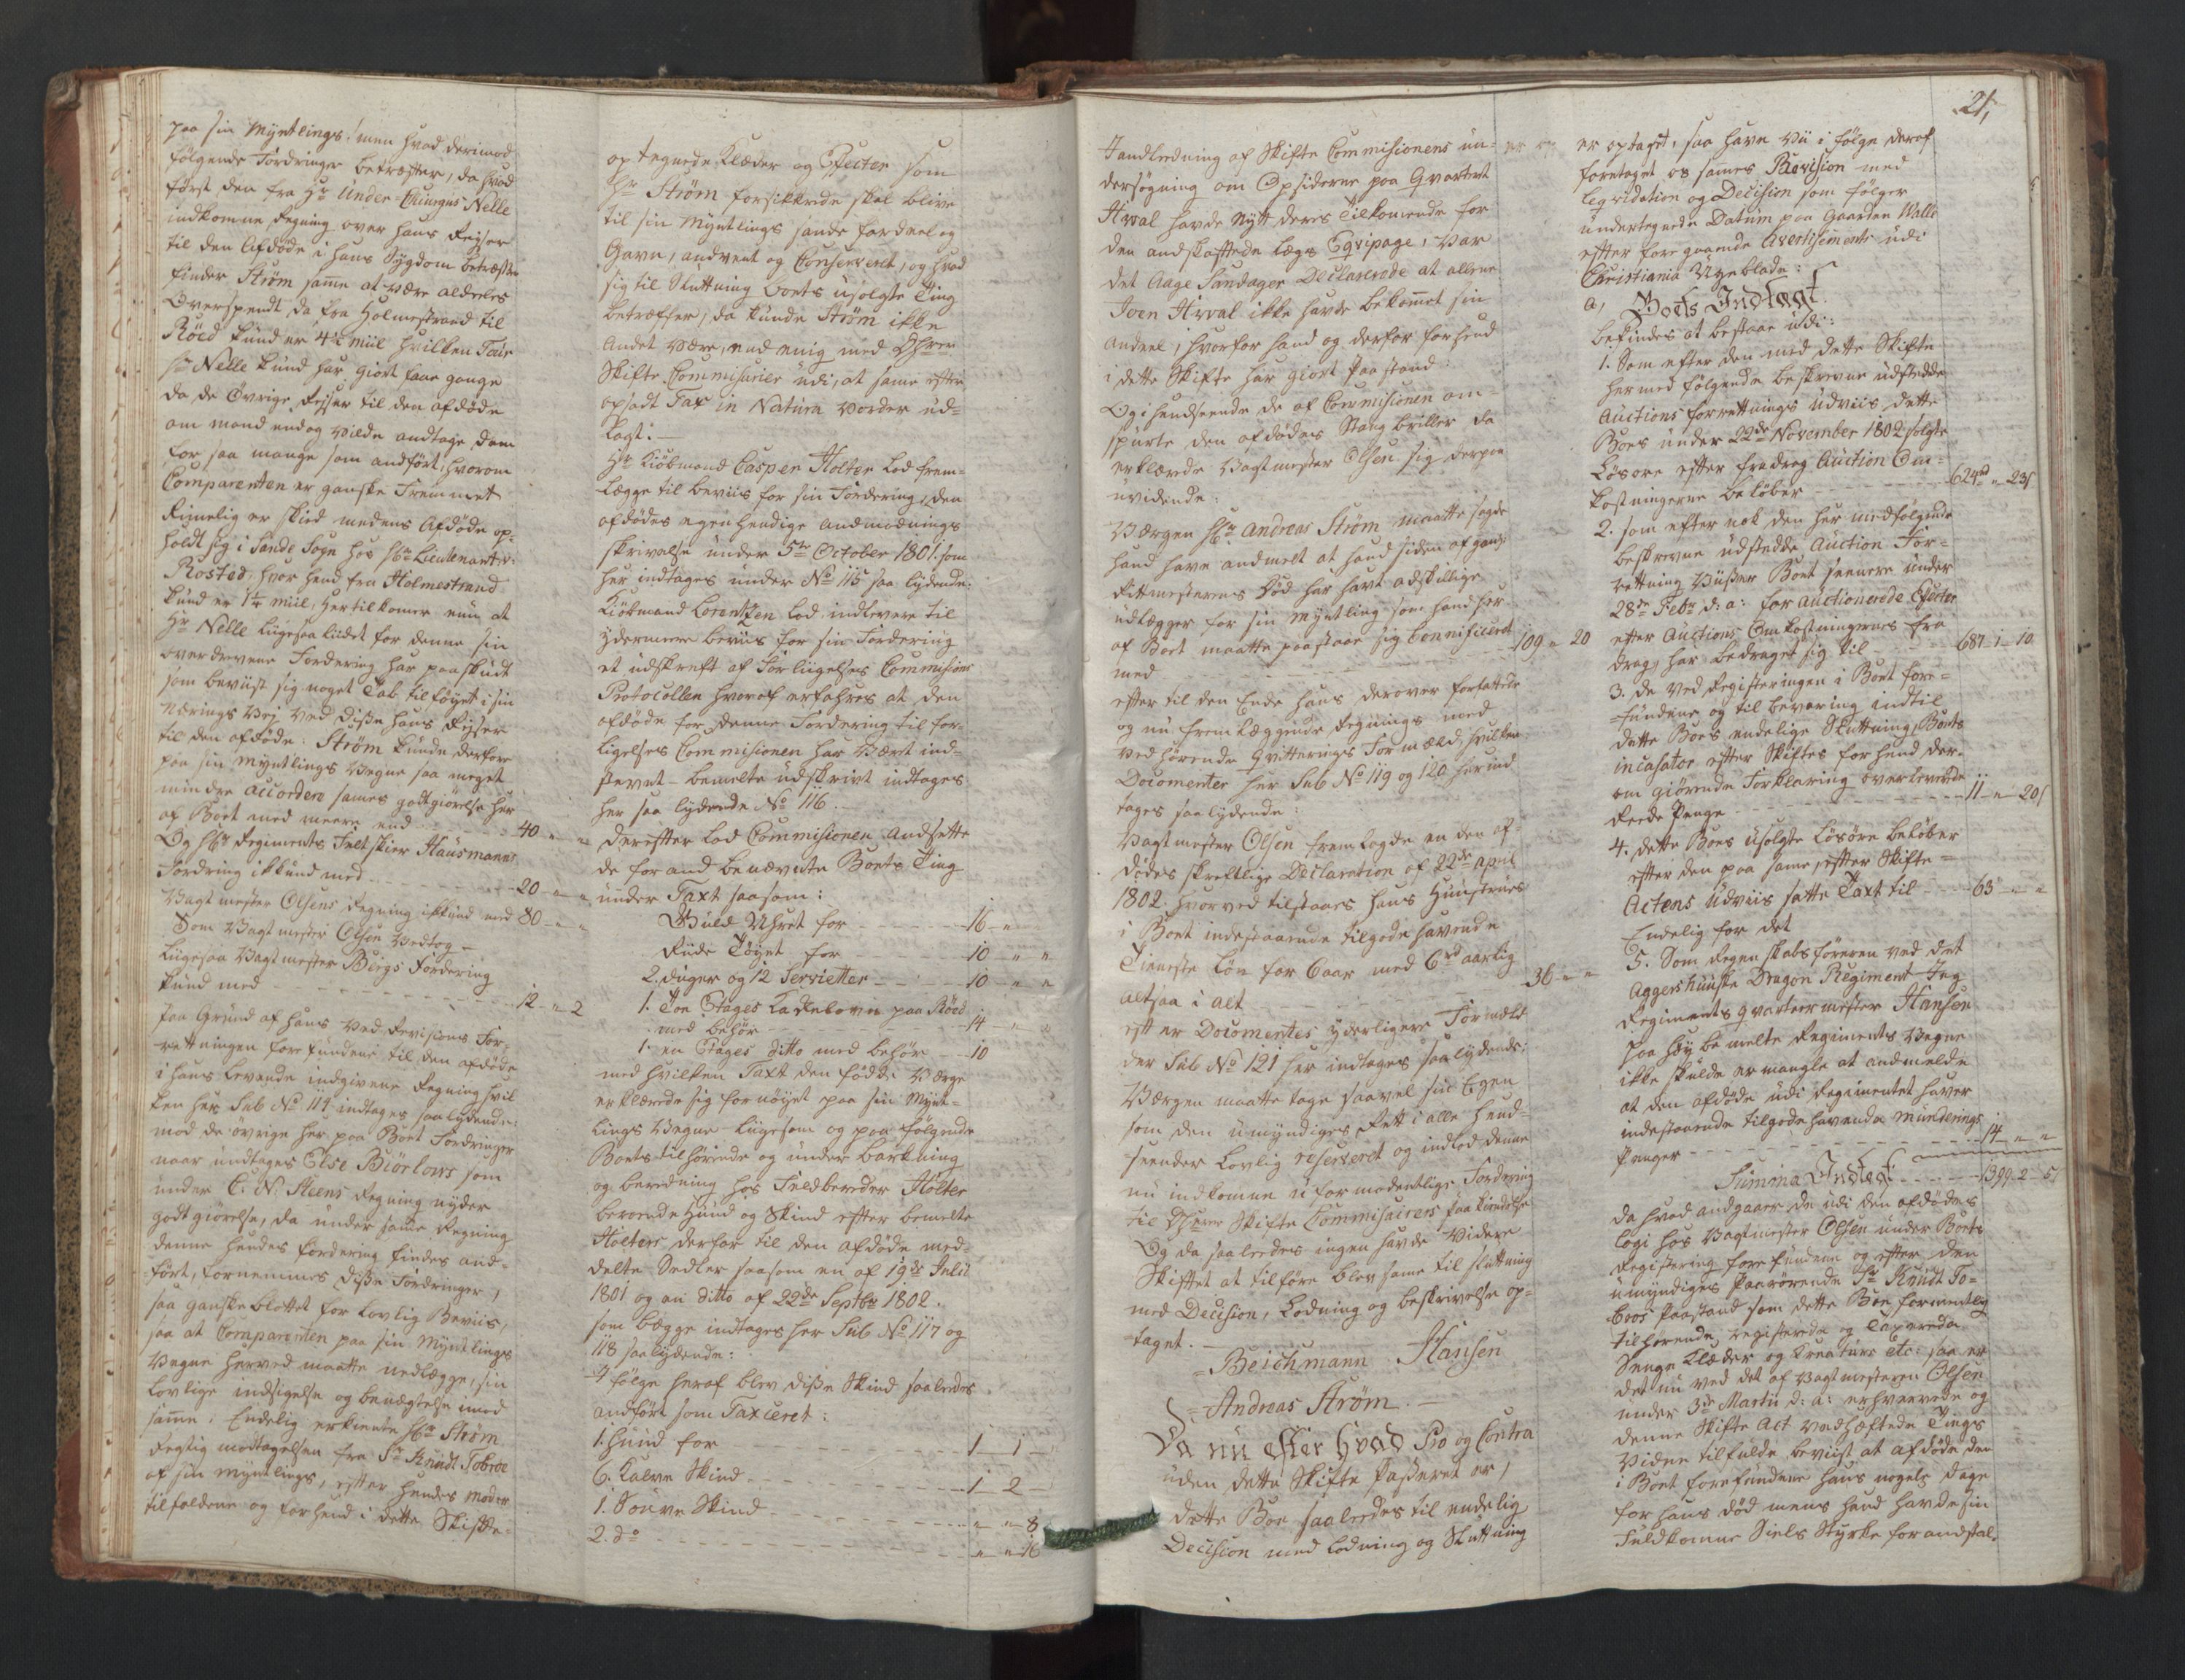 paa sin Myntlings! men hvad derimod
følgende Fordringer betræffer, da hvad
først den fra Hr Under Chirurgus Nelle
indkomne Regning over hans Rejser
til den Afdøde i hans Sygdom betræffer
finder Strøm samme at være aldeles
Overspendt, da fra Holmestrand til
Røed kund er 4 1/2 Miil hvilken Tour
Hr Nelle kund har giort faae gange
da de Øvrige Rejser til den afdøde
om mand endog vilde andtage dem
for saa mange som andført, hvorom
Comparenten er ganske Fremmet
Rimelig er skied medens Afdøde op-
holdt sig i Sande Sogn hos Hr Lieutenant v:
Rosted, hvor hend fra Holmestrand
kund er 1 1/4 Miil, hertil komer enu at
Hr Nelle liigesaa lidet for denne sin
overdrevene Fordering har paaskudt
som beviist sig noget Tab tilføyet i sin
Nærings Vej ved disse hans Rejser
til den afdøde: Strøm kunde derfore
paa sin Myntlings Vegne saa meget
mindre accordere sames godtgiørelse her
af Boet med meere end - - - 40 " "
Og Hr Regiments Feltskier Hausmanns
Fordring ikkund med - - - 20 - " "
Vagtmester Olsens Regning ikkund med 80 - " "
Som Vagtmester Olsen vedtog -
Liigesaa Vagtmester Bergs Fordering
kund med - - - 12 - " 2
Paa Grund af hans ved Revisions For-
rettningen forefundene til den afdøde
i hans levende indgivene Regning hvil-
ken her Sub No 114 indtages saalydende:
mod de øvrige her paa Boet Fordringer
naar undtages Else Biørlows som
under C. N. Steens Regning nyder
godtgiørelse, da under samme Regning
denne hendes fordering findes and-
ført, fornemmes disse Fordringer,
saa ganske blottet for lovlig Beviis,
saa at Comparenten paa sin Myntlings
Vegne herved maatte nedlægge, sin
lovlige indsigelse og benægtelse mod
samme. Endelig erkiente Hr Strøm
Rigtig modtagelsen fra Sr Knudt Tobroe
af sin Myntlings, efter hendes Moder
tilfaldene og forhend i dette Skifte-
optegnede Klæder og Effecter som
Hr Strøm forsikkrede skal blive
til sin Myntlings sande fordeel og
Gavn, andvent og Conserveret, og hvad
sig til Sluttning Boets usolgte Ting
betræffer, da kunde Strøm ikke
andet være, end enig med Dhrer
Skifte Commisarier udi, at same efter
opsadt Tax in Natura vorder ud-
lagt. -
Hr Kiøbmand Casper Holter lod frem-
lægge til beviis for sin Fordering, den
afdødes egenhændige andmodnings
skrivelse under 5te October 1801. som
her indtages under No 115 saa lydende:
Kiøbmand Lorentzen lod indlevere til
ydermere beviis for sin Fordering
et udskreft af Forliigelses Commisions
Protocollen hvoraf erfahres at den
afdøde for denne Fordering til for-
ligelses Commisionen har Vært ind-
stevnt - bemelte udskrivt indtages
her saa lydende No 116. -
Derefter lod Commisionen Andsætte
de forand benævnte Boets Ting
under Taxt saasom:
Guld Uhret for - - - 16 - "
Ride Tøyet for - - - 10 " "
2. duger og 12 Servietter - - - 10 - " "
1. Toe Etages Kakelovn paa Røed
med behør - - - 14 - "
1. en Etages ditto med behør - - 10
med hvilken Taxt den fødde Værge
erklærede sig fornøyet paa sin Mynt-
lings Vegne - Liigesom og paa følgende
Boets tilhørende og under barkning
og beredning hos Feldbereder Holter
beroende Hund og Skind efter bemelte
Holters derfor til den afdøde med-
delte Sedler saasom en af 19de Julii
1801 og en ditto af 22de Septbr 1802.
som begge indtages her Sub No 117 og
118 saalydende:
I følge heraf blev disse Skind saaledes
andført som Taxeret:
1. Hund for - - - 1 - 1 -
6. Kalve Skind - - - 1 - 2 -
1. Soure Skind - - - " - " - 8
2. do - - - " - " 16
Handledning af Skifte Commisionens un-
dersøgning om Opsiderne paa Qvarteret
Hval havde nytt deres Tilkomende for
den andskaffede lægs Eqvipage, Var
det Aage Sandager Declarerede at allene
Joen Hval ikke havde bekommet sin
andeel, hvorfor hand og derfor forhend
i dette Skifte har giort Paastand:
Og i henseende de af Commisionen om-
spurte den afdødes Stang briller da
erklærede Vagtmester Olsen sig derpaa
uvidende:
Værgen Hr Andreas Strøm maatte sagde
hand have andmelt at hand siden afgangne
Rittmesterens Død har havt adskillige
udlægger for sin Myntling som hand her
af Boet maatte paastaae sig bonnificeret
med - - - 109 " 20
efter til den Ende hans derover forfattede
og nu fremlæggende Regnings med
ved hørende Qvitterings Formæld, hvilken
Documenter her Sub No 119 og 120 her ind
tages saalydende:
Vagtmester Olsen fremlagde en den af-
dødes skrevtlige Declaration af 22de April
1802. hvorved tilstaaes hans Hunstrues
i Boet indestaaende tilgodehavende
Tieneste Løn for 6 aar med 6 rd aarlig
altsaa i alt - - - 36 " "
efter Documentes yderligere Formæld
der Sub No 121 her indtages saalydende:
Værgen maatte tage saavel sin Egen
som den umyndiges Rett i alle hend-
seender Lovlig reserveret og indlod denne
nu indkomne uformodentlige Fordering
til Dherrer Skifte Commisairers Paakiendelse
Og da saaledes ingen havde Videre
Skiftet at tilføre blev same til sluttning
med Decision, Lodning og beskrivelse op-
taget. -
Beichmann Hansen
Andreas Strøm. -
Da nu efter hvad Pro og Contra
uden dette Skifte Passeret er,
dette Boe saaledes til endelig
Decision med Lodning og Sluttning
21,
er optaget, saa have Vii i følge deraf
foretaget os sames Revision med
Leqvidation og Decision som følger
undertegnede Datum paa Gaarden Walle
efter foregaaende Avertisements udi
Christiania Ugeblade:
a, Boets Indtægt
befindes at bestaae udi:
1. Som efter den med dette Skifte
hermed følgende beskrevne udstedde
Auctions forrettnings udviis dette
Boes under 22de November 1802 solgte
Løsøre efter fradrog Auction Om-
kostningerne beløber - - - 624 rd " 23 s
2. som efter nok den her medfølgende
beskrevne udstedde Auction For-
rettning Viiser Boet seenere under
28de Febr d: a: for auctionerede Effecter
efter Auctions Omkostningernes fra
drag, har bedraget sig til - - - 687 - 1 - 10.
3. de ved Registeringen i Boet fore-
fundene og til bevaring indtil
dette Boes endelige Sluttning, Boets
incasator efter Skiftes forhend der-
om giørende Forklaring overleverede
Reede Penge - - - 11 - " 20 s
4. dette Boes usolgte Løsøre beløber
efter den paa same, efter Skifte-
Actens Udviis satte Taxt til - - - 63 - " "
Endelig for det
5. Som Regenskabsføreren ved det
Aggershuuske Dragon Regiment Jeg
Regiments qvarteermester Hansen
paa høybemelte Regiments Vegne
ikke skulde ermangle at andmelde
at den afdøde udi Regimentet haver
indestaaende tilgodehavende Munderings
Penger - - - 14 - " "
Summa Indtægt - - - 1399 - 2 - 5 s
da hvad andgaaer de udi den afdødes
logi hos Vagtmester Olsen under Boets
Registering forefundene og efter den
umyndiges Paarørende Sr Knudt To-
broes Paastand som dette Boe formentlig
tilhørende registerede og Taxerede
Senge Klæder og Creature etc: saa er
det nu ved det af Vagtmesteren Olsen
under 3de Martii d: a: erhvervede og
denne Skifte Act vedheftede Tings
Vidne tilfulde beviist at afdøde den
i Boet forefundene hans nogele dage
for hans død mens hand havde sin
Fuldkomne Siels Styrke forandstal-